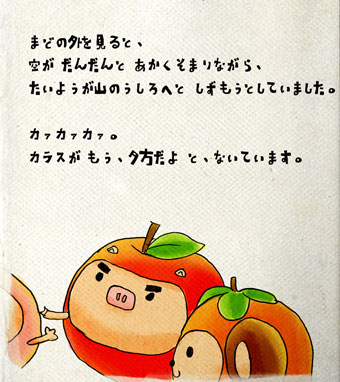 まどの外を見ると、
空が だんだんと あかくそまりながら、
たいようが山のうしろへと しずもうとしていました。
カァカァカァ。
カラスが もう、夕方だよ と、ないています。